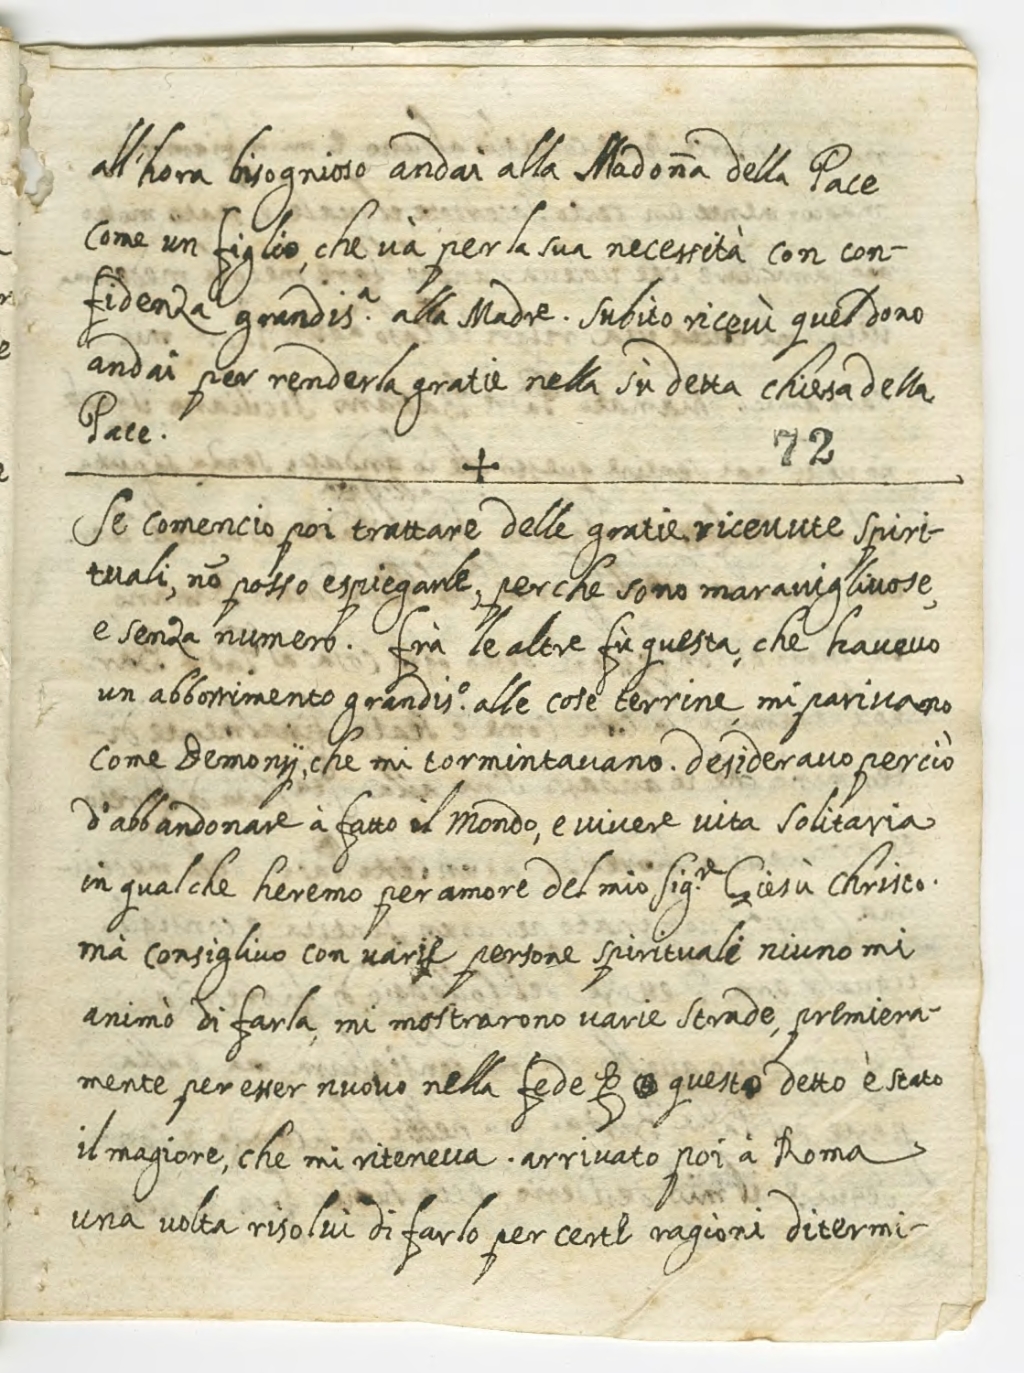 all'hora bisognioso andai alla Madoña della Pace
come un figlio, che uà per la sua necessità con con-
fidenza grandis.ª alla Madre. subito riceuì quel dono
andai per renderla gratie nella sù detta chiesa della
Pace.
72
+
Se comencio poi trattare delle gratie riceuute spiri-
tuali, nõ posso espiegarle, perche sono marauigliuose,
e senza numero. frà le altre fù questa, che haueuo
un abborrimento grandis.º alle cose terrine, mi pariuano
come Demonij, che mi tormintauano. desiderauo perciò
d'abbandonare à fatto il Mondo, e uiuere uita solitaria
in qualche heremo per amore del mio Sig.re Giesù Christo.
mà consigliuo con uarie persone spirituali niuno mi
animò di farla, mi mostrarono uarie strade, premiera-
mente per esser nuouo nella fede questo detto è stato
il magiore, che mi riteneua. arriuato poi à Roma
una uolta risoluì di farlo per certe ragioni ditermi-